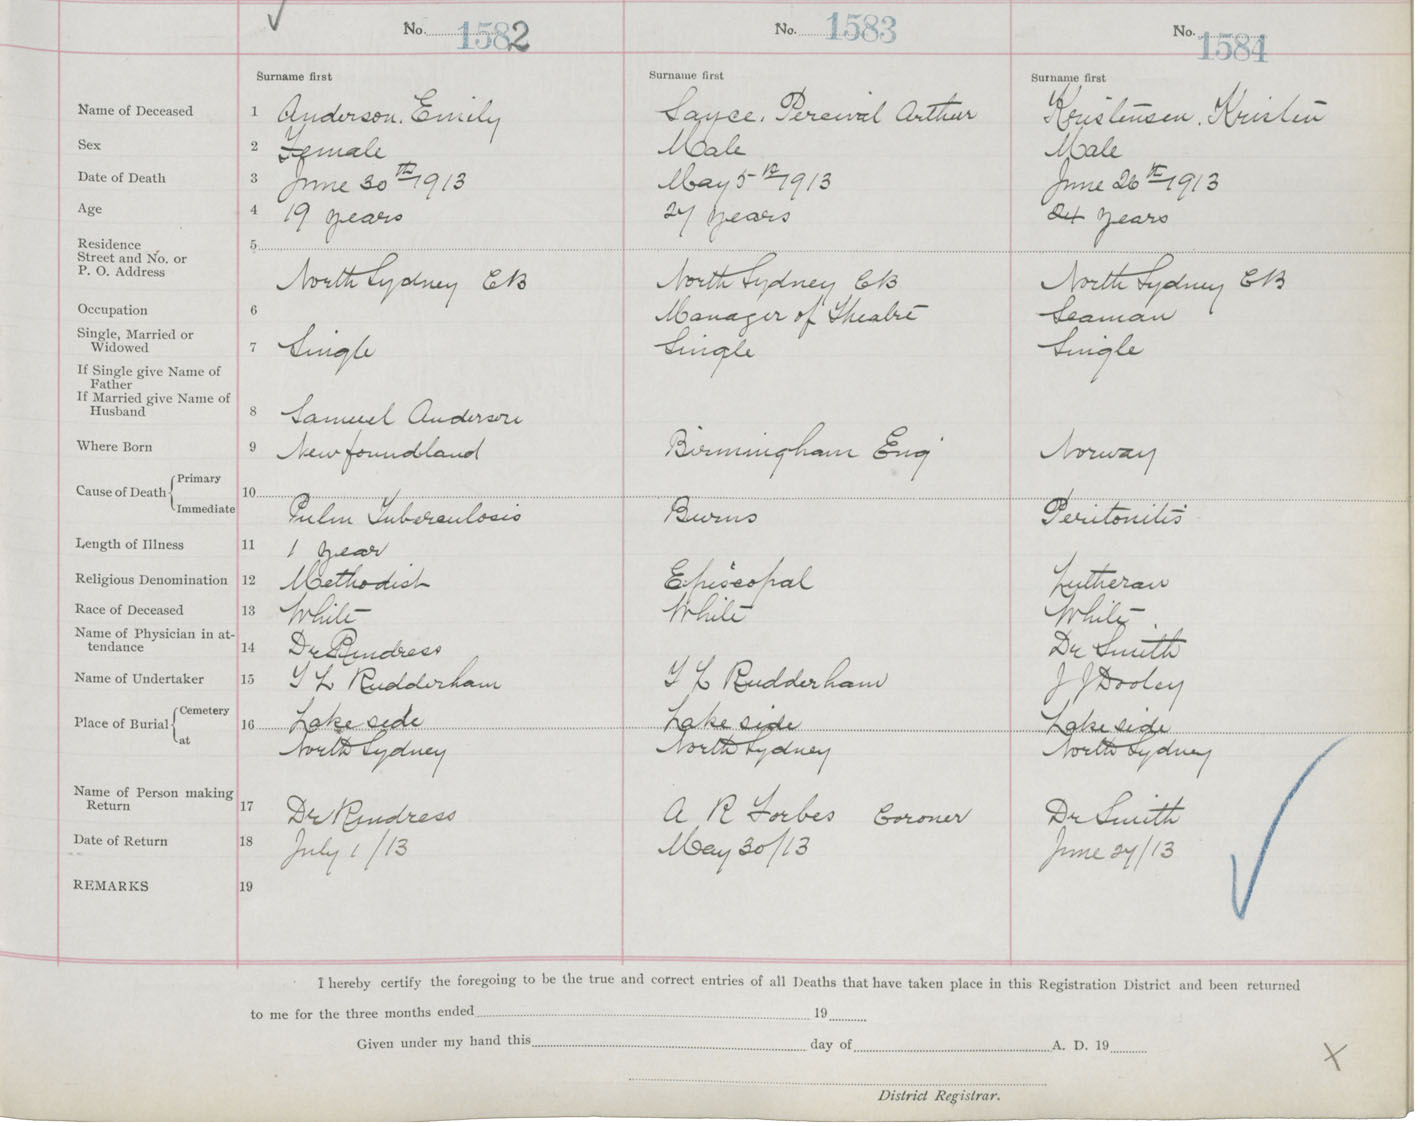 No. 1582 No. 1583 No. 1584
Surname first Surname first Surname first
Name of Deceased 1 Anderson, Emily Sayce, Percival Arthur Kristensen, Kristen
Sex 2 Female Male Male
Date of Death 3 June 30th 1913 May 5th 1913 June 26th 1913
Age 4 19 years 27 years 24 years
Residence 5
Street and No. or
P. O. Address North Sydney CB North Sydney CB North Sydney CB
Occupation 6 Manager of Theatre Seaman
Single, Married or
Widowed 7 Single Single Single
If Single give Name of
Father
If Married give Name of
Husband 8 Samuel Anderson
Where Born 9 Newfoundland Birmingham Eng Norway
Cause of Death Primary 10
Immediate Pulm Tuberculosis Burns Peritonitis
Length of Illness 11 1 year
Religious Denomination 12 Methodist Episcopal Lutheran
Race of Deceased 13 White White White
Name of Physician in at-
tendance 14 Dr Rindress Dr Smith
Name of Undertaker 15 T L Rudderham T L Rudderham J J Dooley
Place of Burial Cemetery 16 Lake side Lake side Lake side
at North Sydney North Sydney North Sydney
Name of Person making
Return 17 Dr Rindress A R Forbes Coroner Dr Smith
Date of Return 18 July 1/13 May 30/13 June 27/13
REMARKS 19
I hereby certify the foregoing to be the true and correct entries of all Deaths that have taken place in this Registration District and been returned
to me for the three months ended 19
Given under my hand this day of A. D. 19
District Registrar.